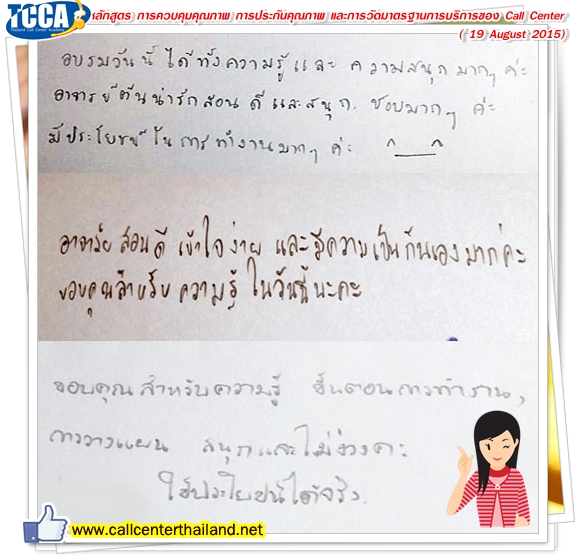 TCCA
Thailand Call Center Academy
หลักสูตร การควบคุมคุณภาพ การประกันคุณภาพ และการวัดมาตรฐานการบริการของ Call Center
( 19 August 2015)
อบรมวันนี้ ได้ทั้งความรู้และ ความสนุกมากๆ ค่ะ
อาจารย์ต้นน่ารักสอนดีและสนุก. ชอบมากๆ ค่ะ
มีประโยชน์ในการทำงานมากๆ ค่ะ ^__^
อาจารย์สอนดี เข้าใจง่าย และมีความเป็นกันเองมากค่ะ
ขอบคุณสำหรับความรู้ในวันนี้นะคะ
ขอบคุณสำหรับความรู้ ขั้นตอนการทำงาน,
การวางแผน สนุกและไม่ง่วงคะ
ใช้ประโยชน์ได้จริง.
www.callcenterthailand.net